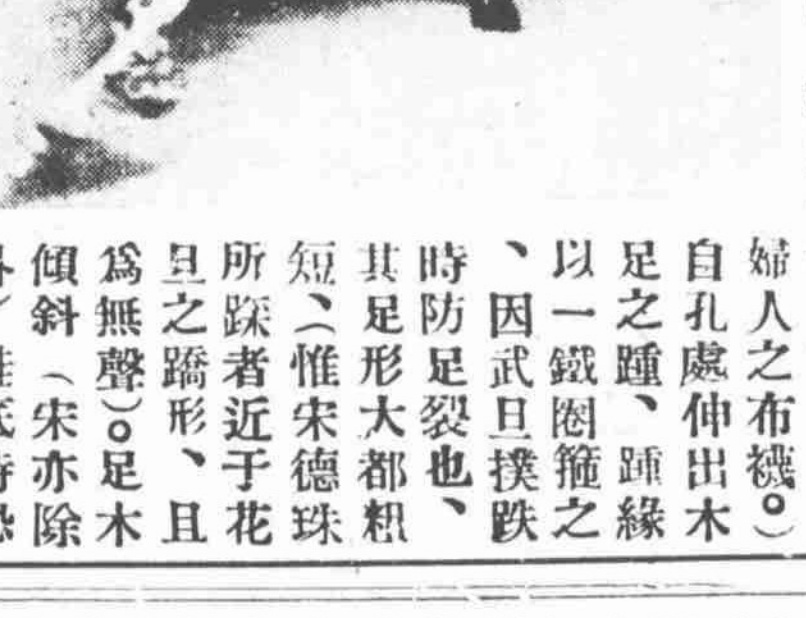 婦人之布襪。）
自孔處伸出木
足之踵、踵緣
以一鐵圈箍之
、因武旦撲跌
時防足裂也、
其足形大都粗
短、（惟宋德珠
所踩者近于花
旦之蹻形、且
爲無聲）。足木
傾斜（宋亦除